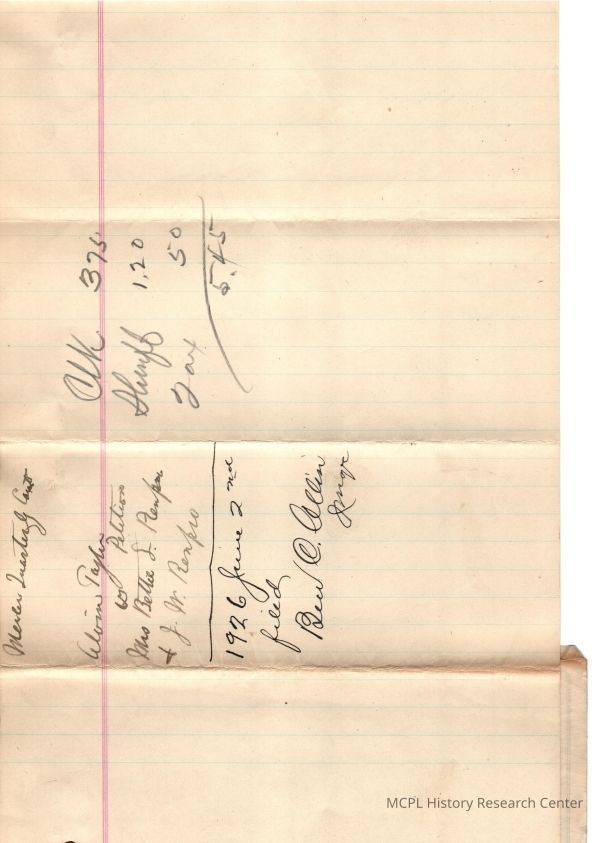 Mercer Quarterly Court
Alvin Taylor
Petition
Mrs Bettie D. Renfro
& J. W. Renfro
1926 June 2nd
filed
Ben C. Allin
Judge
Clk 375
Sheriff 1.20
Tax 50
5.45
MCPL History Research Center